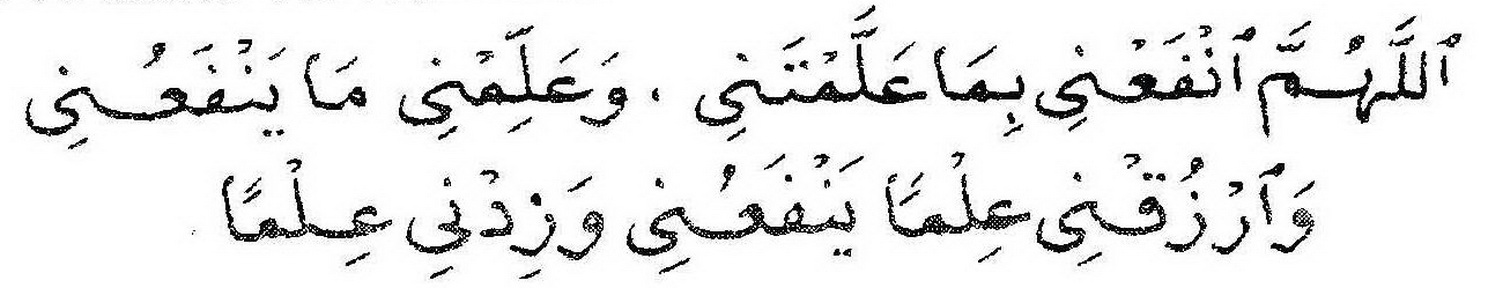 ٱللَّهُمَّ ٱنْفَعْنِي بِمَا عَلَّمْتَنِي . وَعَلِّمْنِي مَا يَنْفَعُنِي
وَٱرْزُقْنِي عِلْمًا يَنْفَعُنِي وَزِدْنِي عِلْمًا